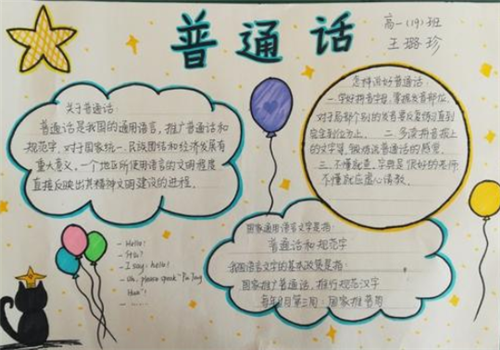 普通话
高一(19)班
王璐珍
关于普通话:
普通话是我国的通用语言,推广普通话和
规范字,对于国家统一、民族团结和经济发展有
重大意义,一个地区所使用语言的文明程度
直接反映出其精神文明建设的进程。
怎样说好普通话:
一.学好拼音字母,掌握发音部位,
对于后那个别的发音要反复练习直到
完全到位为止。二.多读拼音报上
的文字等,锻炼说普通话的感觉。
三.不懂就查,字典是很好的老师
不懂就应虚心请教。
国家通用语言文字是指:
普通话和规范字
我国语言文字的基本政策是指:
国家推广普通话,推行规范汉字
每年9月第三周:国家推普周
- Hello!
- I say: hello!
- Oh, please speak "Pu Tong
Hua"!